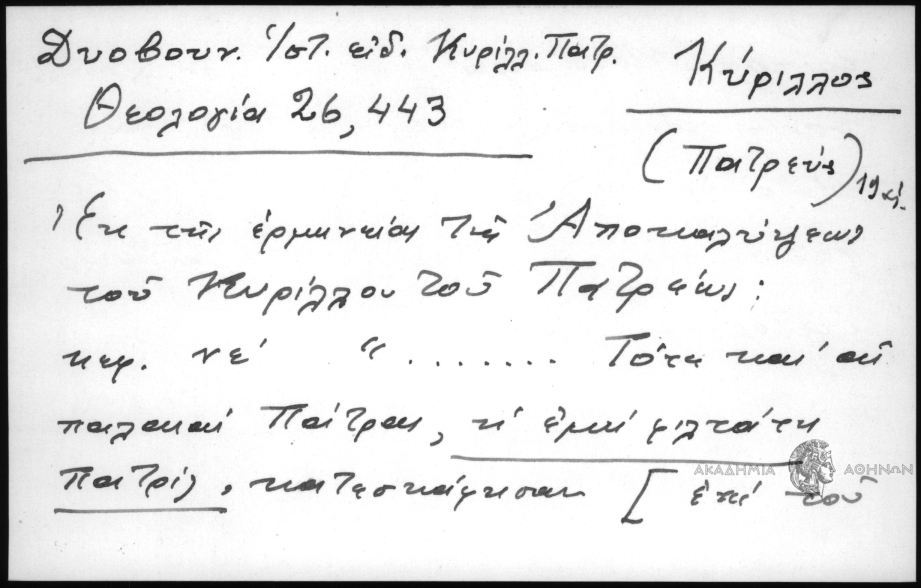 Δυοβουν. Ἱστ. εἰδ. Κυρίλλ. Πατρ.
Θεολογία 26, 443
Κύριλλος
(Πατρεύς) 19 αἰ.
Ἐκ τῆς ἑρμηνείας τῆς Ἀποκαλύψεως
τοῦ Κυρίλλου τοῦ Πατρέως:
κεφ. νε' "....... Τότε καὶ αἱ
παλαιαὶ Πάτραι, ἡ ἐμὴ φιλτάτη
Πατρίς, κατεσκάφησαν [ἐπὶ τοῦ
ΑΚΑΔΗΜΙΑ ΑΘΗΝΩΝ